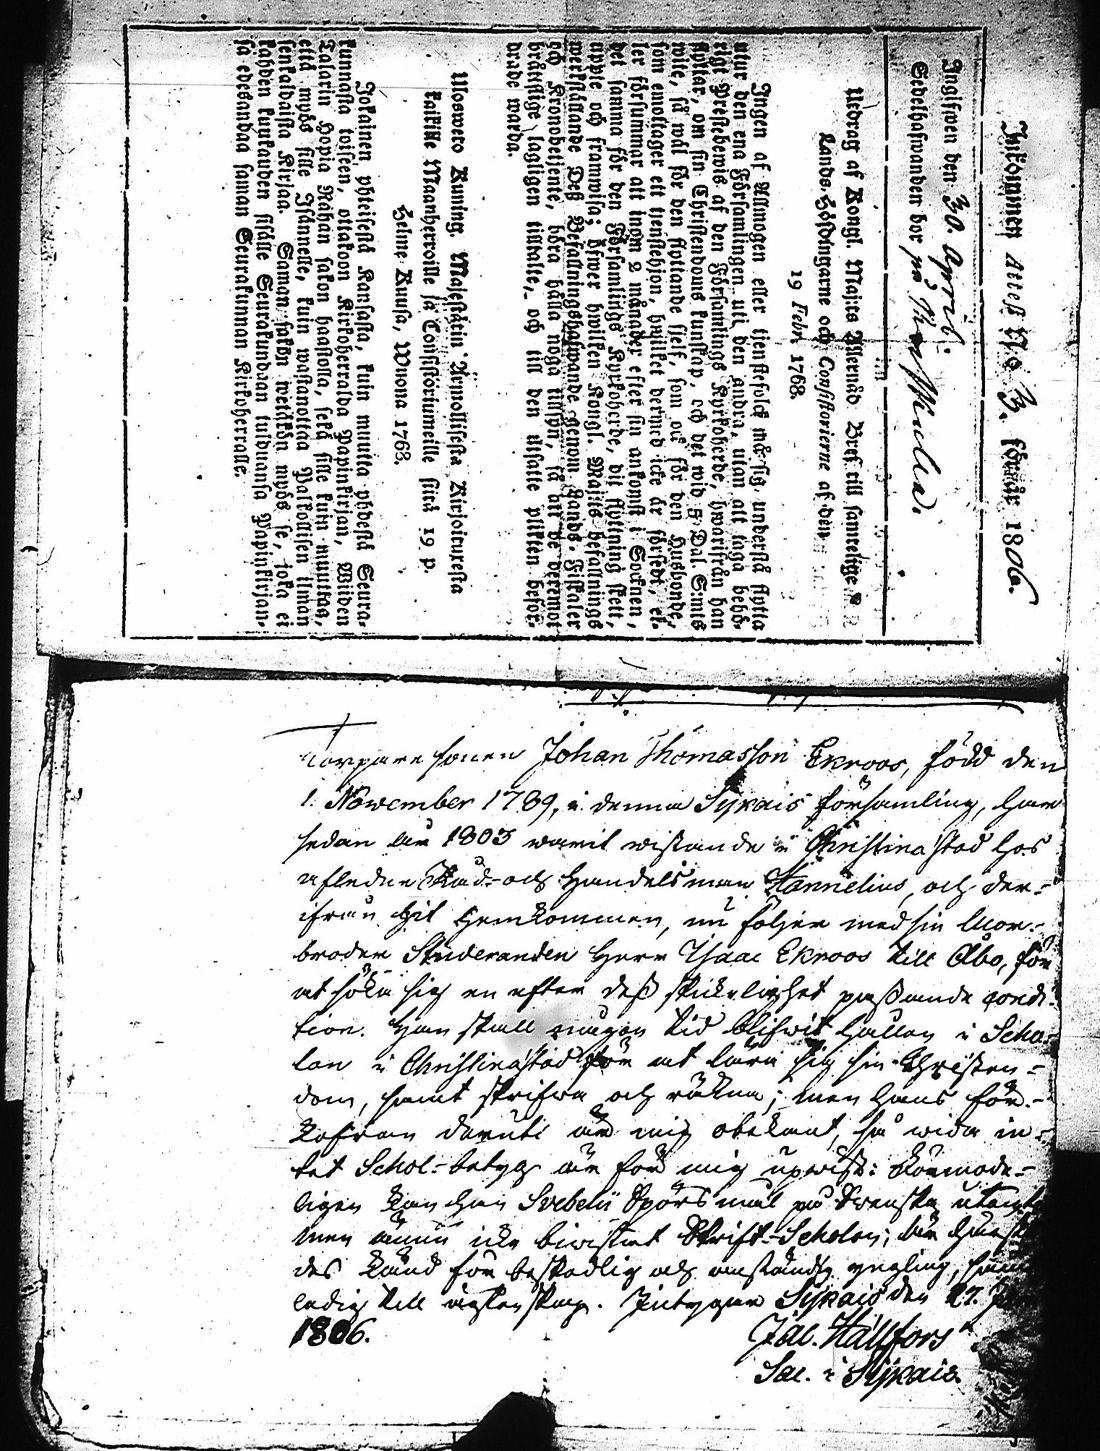 Inkommen Attest No 3. för år 1806.
Inglifwen den 30. April.
Sedelhafwanden bor på
Utdrag af Kongl. Maj:ts Allernåd. Bref till samtelige
Lands-Höfdingarne och Consistorierne af den
19 Febr. 1768.
Ingen af Allmogen eller tienstefolck må sig understå flytta
utur den ena Församlingen uti den andra, utan att taga behö-
rigt Prestebewis af den Församlings Kyrkoherde, hwarifrån han
flyttar, om sin Christendoms kunskap, och det wid 5 Dal. S:mts
wite, så wäl för den flyttande sjelf, som ock för den Husbonde,
som emottager ett tienstehjon, hwilket dermed icke är försedt, el-
ler försummar att inom 2 månader efter sin ankomst i Socknen,
det samma för den Församlings Kyrkoherde, dit flyttning skett,
upte och framwisa; öfwer hwilken Kongl. Maj:ts befallnings
werkställande Dess Befallningshafwande genom Lands-Fiskaler
och Kronobetjente, böra hålla noga tillsyn, så att de deremot
bråttslige lagligen tilltalte, och till den utsatte plikten befor-
drade warda.
Ulosweto Kuning. Majestätin Armollisesta Kirjoituxesta
kaikille Maanherroille ja Consistoriumeille siitä 19 p.
Helme Kuusa, Wuona 1768.
Jokainen yhteisestä Kansasta, kuin muutta yhdestä Seura-
kunnasta toiseen, ottakoon Kirkoherralda Papinkirjan, Wiiden
Talarin Hopia Rahan sakon haastolla, sekä sille kuin muuttaa,
että myös sille Isännelle, kuin wastanottaa Palkollisen ilman
senkaldaista Kirjaa. Saman sakon wetäkön myös se, joka ei
kahden kuukauden sisälle Seurakundaan tulduansa Papinkirjan-
sa edesandaa saman Seurakunnan Kirkoherralle.
Torpare sonen Johan Thomasson Ekroos, född den
1. November 1789, i denna Sijkais församling, har
sedan år 1803 warit wistande i Christinastad hos
afledne Råd- och Handelsman Kannelius, och der-
ifrån hit hemkommen, nu följer med sin Mor-
broder Studeranden Herr Isaac Ekroos till Åbo, för
at söka sig en efter dess skickelighet passande condi-
tion. Han skall någon tid blifwit hållen i Scho-
lan i Christinastad för at lära sig sin Christen-
dom, samt skrifwa och räkna; men hans för-
kofran deruti är mig obekant, så wida in-
tet Schol-betyg är för mig upwist: Förmode-
ligen kan han Svebelii Spörsmål på Swenska utantil
men ännu icke biwistat Skrift-Scholan; är
des känd för beskedlig och anständig yngling, samt
ledig till ägtenskap. Intygar Sijkais den 27.
1806.
Jac. Hällfors
Sac. i Sijkais.